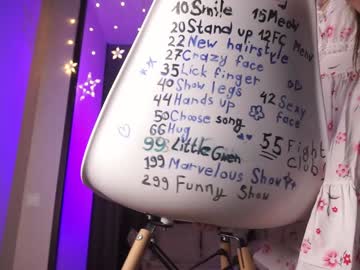 10 Smile 15 Meow
20 Stand up 12 FC Meow
22 New hairstyle
27 Crazy face
35 Lick finger
40 Show legs
44 Hands up 42 Sexy face
50 Choose song
66 Hug
99 Little Green 55 Fight Club
199 Marvelous Show
299 Funny Show